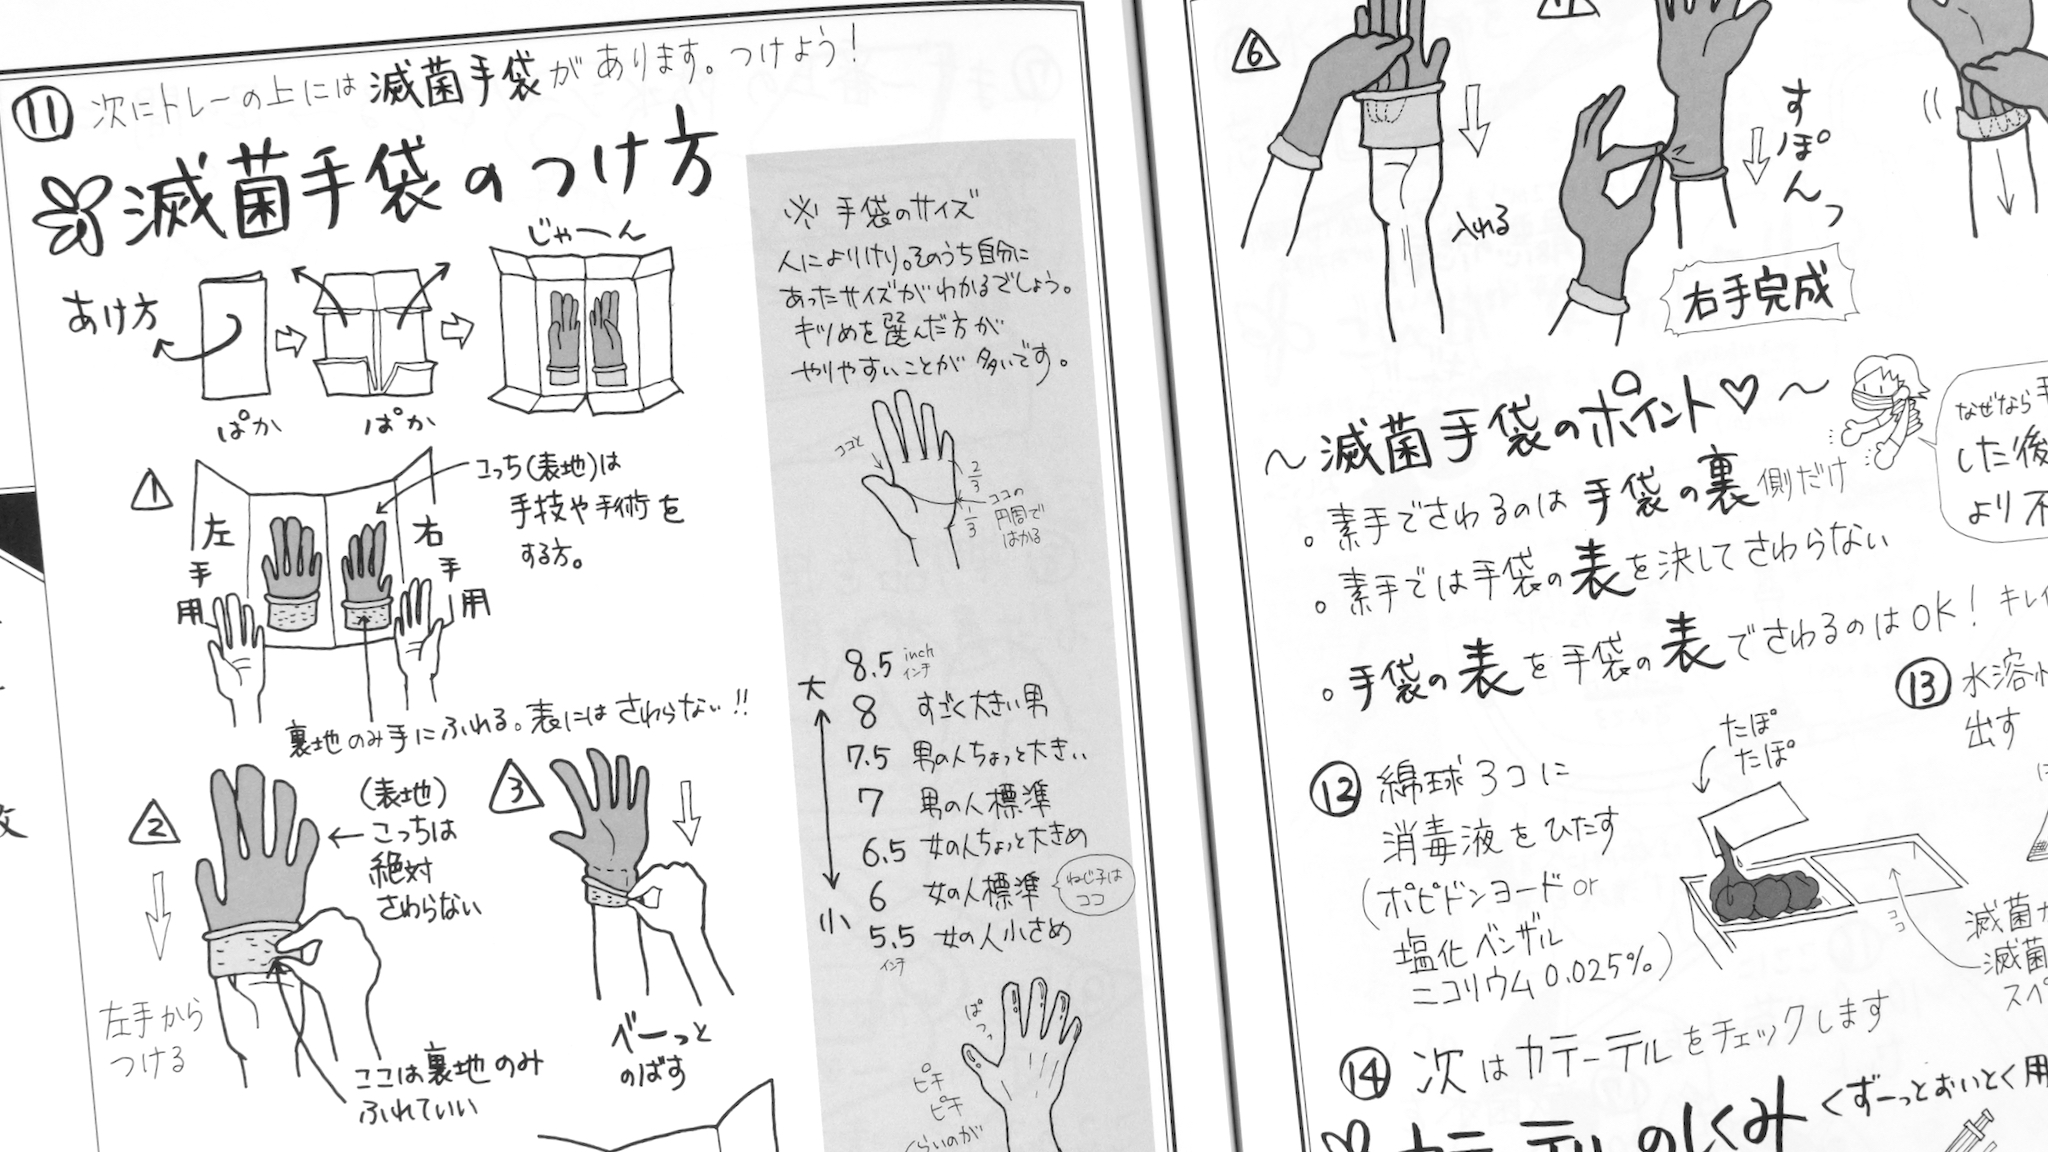 ⑪ 次にトレーの上には滅菌手袋があります。つけよう！
滅菌手袋のつけ方
あけ方
ぱか
ぱか
じゃーん
1
左手用
右手用
こっち(表地)は
手技や手術を
する方。
裏地のみ手にふれる。表にはさわらない!!
2
(表地)
こっちは
絶対
さわらない
左手から
つける
ここは裏地のみ
ふれていい
3
べーっと
のばす
※ 手袋のサイズ
人によりけり。そのうち自分に
あったサイズがわかるでしょう。
キツめを選んだ方が
やりやすいことが多いです。
ココと
2/3
1/3
ココの
円周で
はかる
大
小
8.5 inch インチ
8 すごく大きい男
7.5 男の人ちょっと大きい
7 男の人標準
6.5 女の人ちょっと大きめ
6 女の人標準
ねじ子は
ココ
5.5 女の人小さめ
インチ
ぱっ
ピチ
ピチ
くらいのが
6
入れる
すぽんっ
右手完成
〜滅菌手袋のポイント♡〜
。素手でさわるのは手袋の裏側だけ
。素手では手袋の表を決してさわらない
。手袋の表を手袋の表でさわるのはOK！キレイ
なぜなら手
した後
より不
⑫ 綿球3コに
消毒液をひたす
(ポピドンヨード or
塩化ベンザル
ニコリウム0.025%)
たぽ
たぽ
ココ
⑬ 水溶性
出す
滅菌ガ
滅菌
スペ
⑭ 次はカテーテルをチェックします
カテーテルのしくみ くずーっとおいとく用